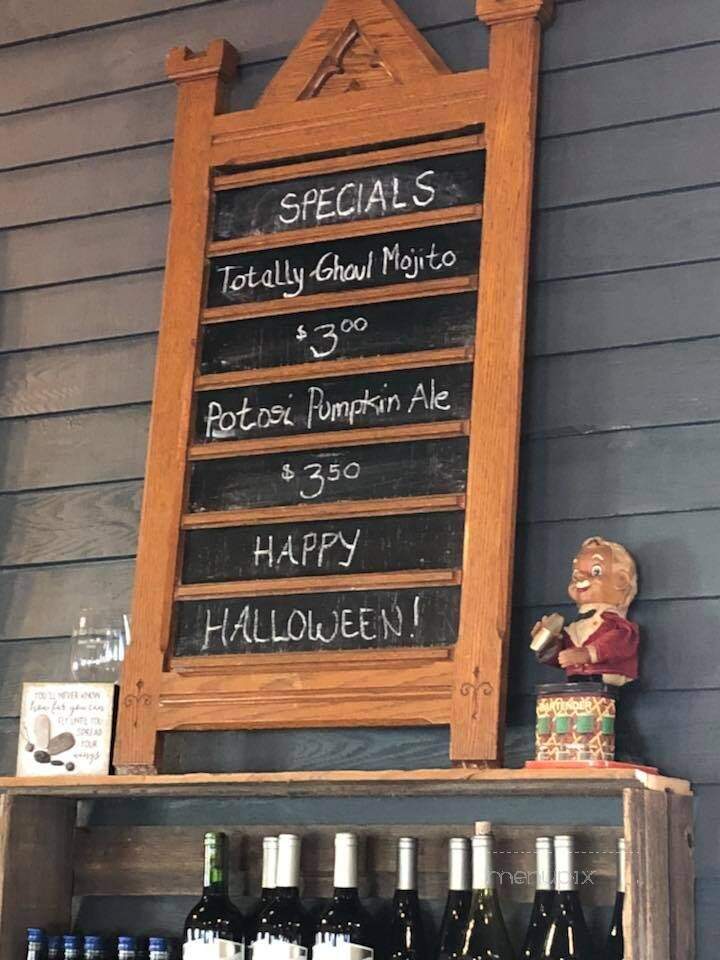 SPECIALS
Totally Ghoul Mojito
$3.00
Potosi Pumpkin Ale
$3.50
HAPPY
HALLOWEEN!
YOU'LL NEVER KNOW
how far you can
FLY UNTIL YOU
SPREAD
YOUR
wings
BARTENDER
menupix